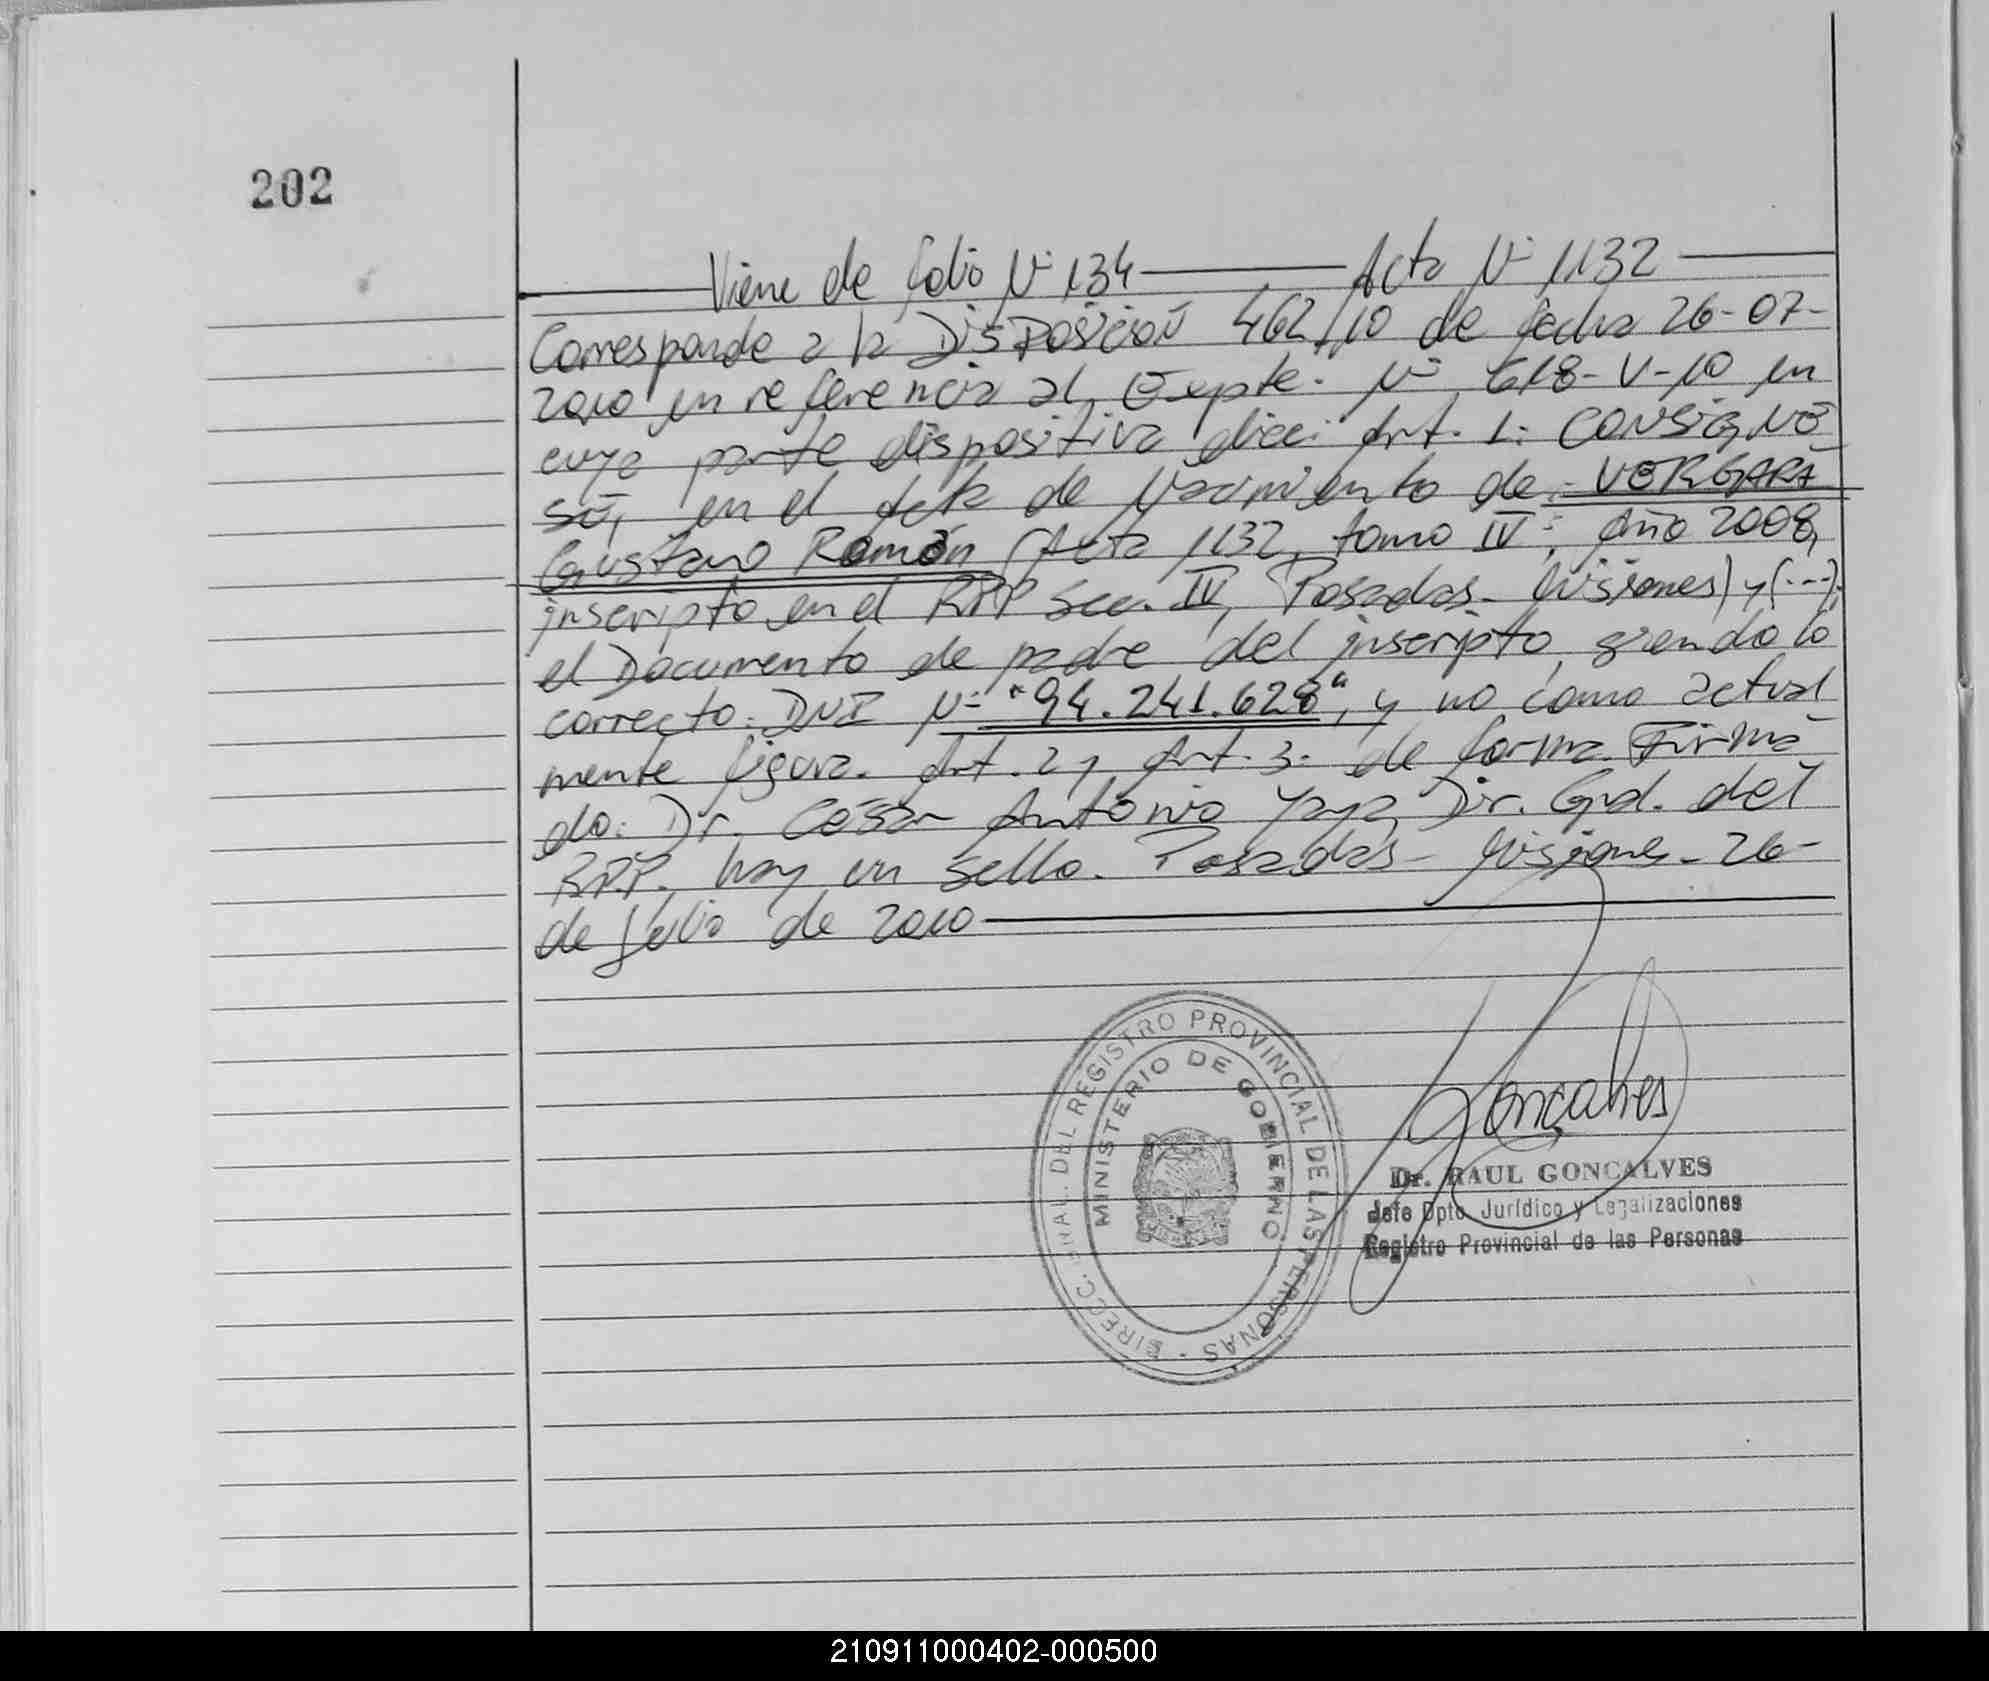 202
Viene de folio Nº 134 — Acta Nº 1132 —
Corresponde a la DISPOSICIÓN 462/10 de fecha 26-07-
2010 en referencia al Expte. Nº 618-V-10 en
cuya parte dispositiva dice: Art. 1: CONSIGNE
SE, en el Acta de Nacimiento de: VERGARA
Gustavo Ramón (Acta 1132, tomo IV: Año 2008,
inscripto en el RPP Sec. IV, Posadas - Misiones) y (...);
el Documento de padre del inscripto, siendo lo
correcto: DNI Nº "94.241.628", y no como actual
mente figura. Art. 2 y Art. 3: de forma. Firma
do: Dr. César Antonio Yaya Dir. Gral. del
RPP. hay un sello. Posadas - Misiones - 26-
de Julio de 2010 —
DIRECC. GRAL. DEL REGISTRO PROVINCIAL DE LAS PERSONAS
MINISTERIO DE GOBIERNO
Goncalves
Dr. RAUL GONCALVES
Jefe Dpto Jurídico y Legalizaciones
Registro Provincial de las Personas
210911000402-000500